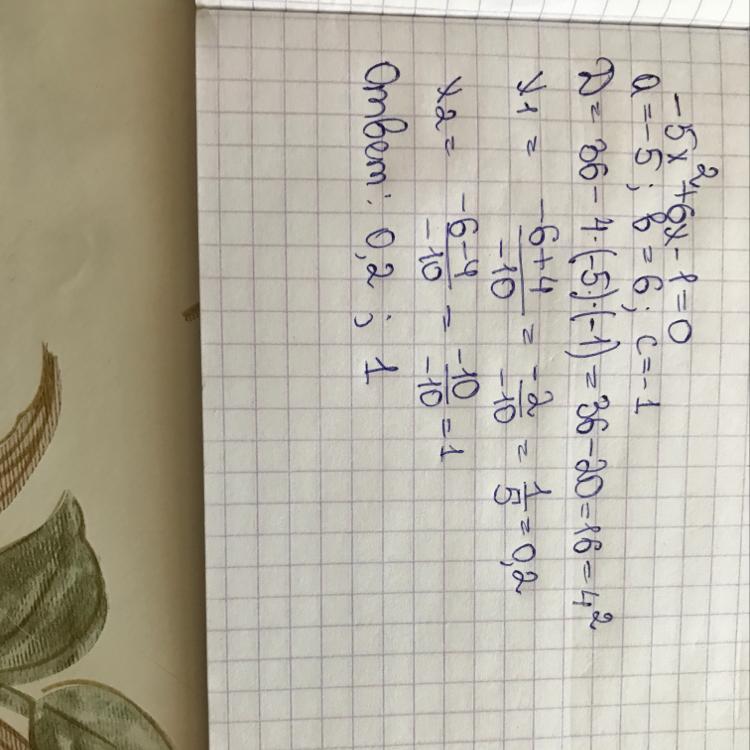 -5x²+6x-1=0
a=-5; b=6; c=-1
D=36-4·(-5)·(-1)=36-20=16=4²
x1 = -6+4/-10 = -2/-10 = 1/5 = 0,2
x2 = -6-4/-10 = -10/-10 = 1
Ответ: 0,2; 1